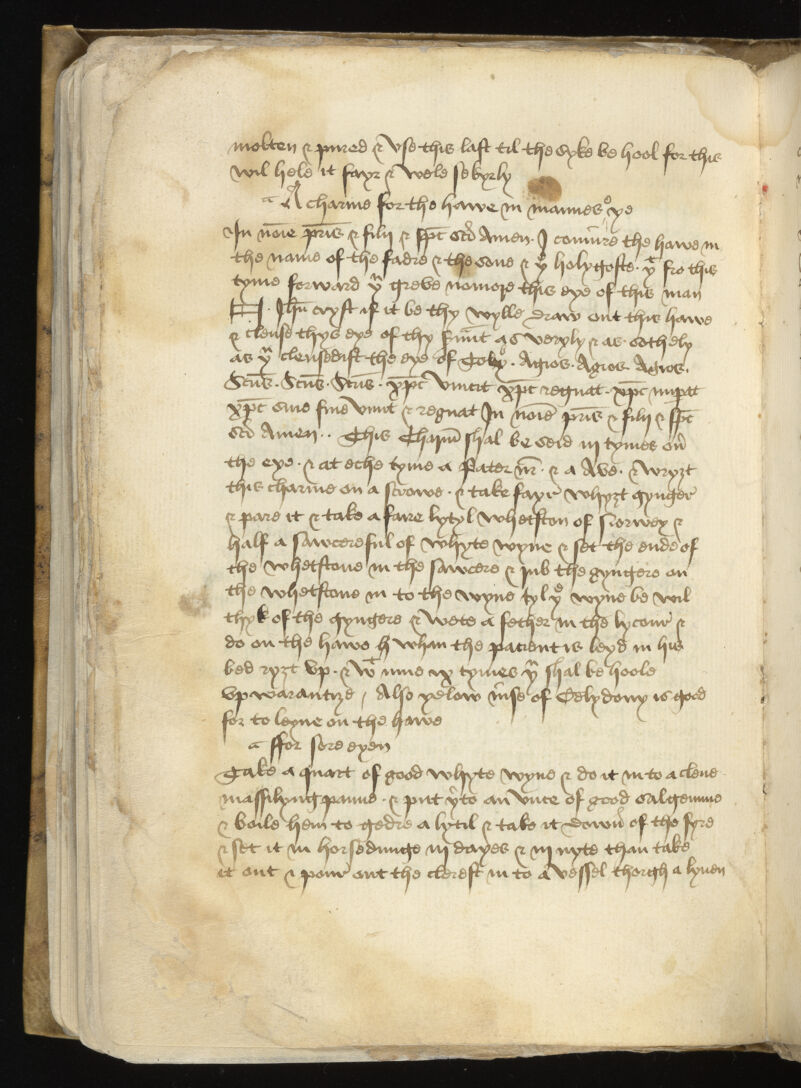 molten & pured & vse this last til the syke be hool for this
wil hele it fayr & wele sekyrly
A charme for the hawe in mannes ye
In noie pris & filij & spc sci Amen. I coniure the hawe in
the name of the fadre & the sone & yͤ holygoste. yͭ fro this
tyme forward yͧ greve nomore this eye of this man
.N. Ihu cryst if it be thy wylle draw out this hawe
& clense thys eye of thy s̄uāt as veryly & as sothely
as yͧ clensedist the eye of Toby. Agios. Agios. Agios.
Scus. Scus. Scus. xpc vincit xpc regnat. xpc impat
xpc sine fine viuit & regnat In noie pris & filij & spc
sci Amen.. This Charm shal be seid iij tymes ou
the eye. & at eche tyme a Pater nr. & a Ave. & wryzt
this charme on a scrowe. & take fayr whyzt gynger
& pare it & take a faire lytyl whetston of Norwey &
half a sawcereful of whyte wyne & set the ende of
the whetstone in the sawcere & rub the gyngere on
the whetstone in to the wyne tyl yͤ wyne be wil
thyk of the gyngere & wete a fether in the lycour &
do on the hawe whan the pacient is leyd in his
bed ryzt vp. & wͭ inne ix tymes yͭ shal be hoole
vp warantize / Also yelow iuse of Celydony is good
for to leyne on the hawe
ffor sore eyen
Take a quart of good whyte wyne & do it in to a clene
masslyng panne. & put yͬto an vnce of good salgemme
& boile hem to gedre a lytil & take it down of the fyre
& set it in horsedunge iij dayes & iij nyte than take
it out & pour out the clerest in to a vessel thorgh a lynen